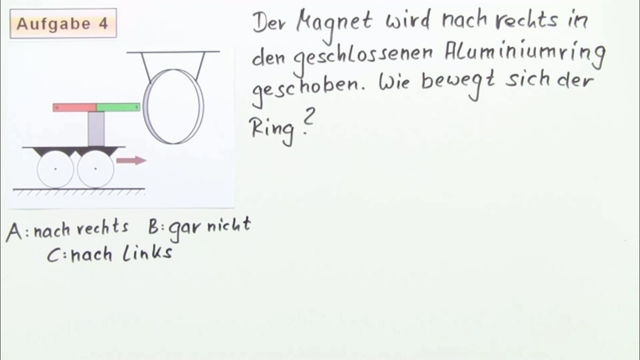 Aufgabe 4
Der Magnet wird nach rechts in
den geschlossenen Aluminiumring
geschoben. Wie bewegt sich der
Ring?
A: nach rechts B: gar nicht
C: nach links